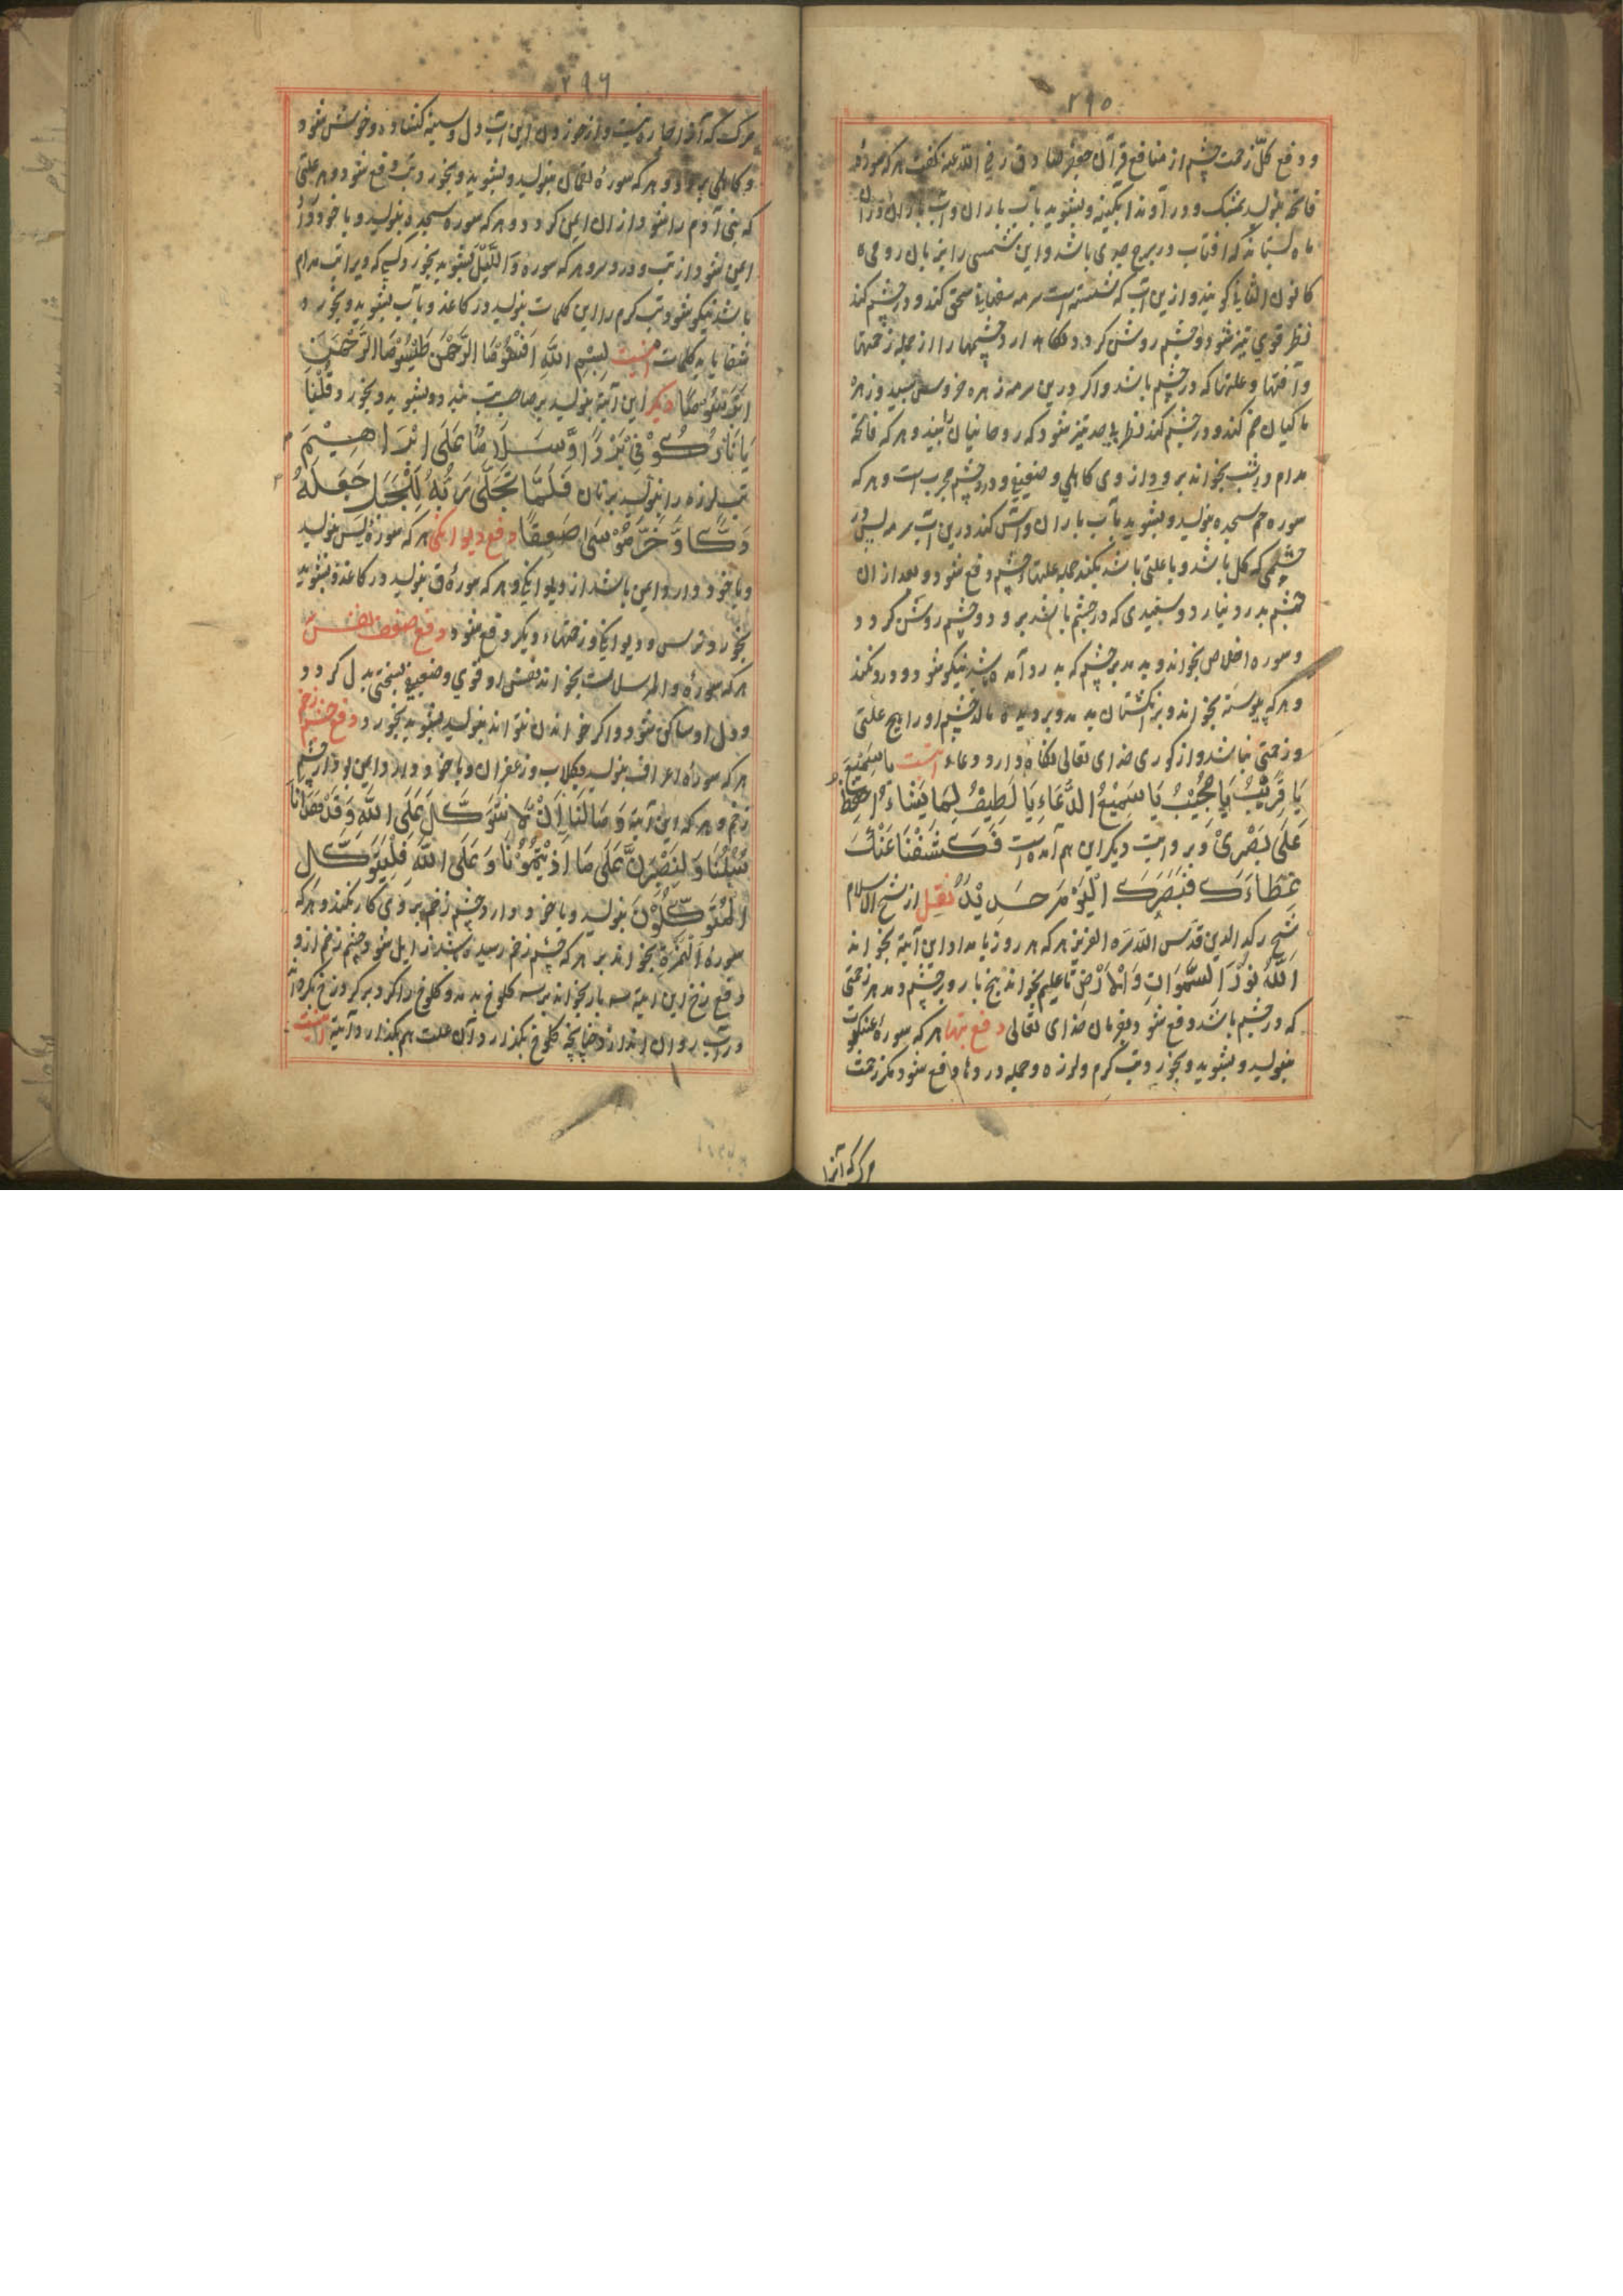 ۲۹۵
و دفع کل زحمت چشم از منافع قرآن جعفر صادق رضی الله عنه گفت هر که سوره
فاتحه بنویسد بمشک و در آوند آبگینه و بشوید بآب باران و آب باران در آن
ماه بستاند که افتاب در برج جدی باشد و این شمسی را بزبان رومی ماه
کانون الثانی گویند و ازین آب که شسته است سرمه صفاهانی سحق کند و در چشم کند
نظر قوی تیز شود و چشم روشن گردد و نگاه دارد چشمها را از جمله زحمتها
و آفتها و علتها که در چشم باشد و اگر درین سرمه زهره خروس سپید و زهره
ماکیان ضم کند و در چشم کند نظر بحد تیز شود که روحانیان را بیند و هر که فاتحه
مدام در شب بخواند برود از وی کاهلی و ضعیفی و درد چشم مجرب است و هر که
سوره حم سجده بنویسد و بشوید بآب باران و آس کند درین آب سرمه پس در
چشمی که گل باشد و یا علتی باشد بکند جمله علتهاء چشم دفع شود و بعد از ان
چشم بدرد نیارد و سفیدی که در چشم باشد برود و چشم روشن گردد
و سوره اخلاص بخواند و بدمد بر چشم که بدرد آمده باشد نیکو شود و درد نکند
و هر که پیوسته بخواند و بر انگشتان بدمد و بر دیده مالد چشم او را هیچ علتی
و زحمتی نباشد و از کوری خدای تعالی نگاه دارد و دعاء اینست یا سمیع
یَا قَرِیْبُ یَا مُجِیْبُ یَا سَمِیْعُ الدُّعَاءِ یَا لَطِیفُ لِمَا یَشَاءُ احْفَظْ
عَلَی بَصَرِیْ و بروایت دیگر این هم آمده است فَکَشَفْنَا عَنْكَ
غِطَاءَكَ فَبَصَرُكَ الْیَوْمَ حَدِیْدٌ نقل از شیخ الاسلام
شیخ رکن الدین قدس الله سره العزیز هر که هر روز بامداد این آیة بخواند
اَللهُ نُوْرُ السَّمٰوَاتِ وَالْاَرْضِ تا علیم بخواند پنج بار و بر چشم دمد هر زحمتی
که در چشم باشد دفع شود بفرمان خدای تعالی دفع تبها هر که سوره عنکبوت
بنویسد و بشوید و بخورد تب گرم و لرزه و جمله دردها دفع شود مگر زحمت
مرگ که آنرا
۲۹۶
مرگ که آنرا چاره نیست و از خوردن این آب دل و سینه کشاده و خوش شود
و کاهلی برود و هر که سوره لقمان بنویسد و بشوید و بخورد تب دفع شود و هر علتی
که بنی آدم را شود از ان ایمن گردد و هر که سوره سجده بنویسد و با خود دارد
ایمن شود از تب و درد سر و هر که سوره وَاللَّیْل بشوید بخورد کسی که ویرا تب مدام
باشد نیکو شود تب گرم را این کلمات بنویسد در کاغذ و بآب بشوید و بخورد
شفا یابد کلمات اینست بِسْمِ اللهِ
دیگر این آیة بنویسد بر صاحب تب بندد و بشوید و بخورد و قُلْنَا
یَا نَارُ کُوْنِیْ بَرْدًا وَّسَلَامًا عَلَی اِبْرَاهِیْمَ
تب لرزه را بنویسد برنان فَلَمَّا تَجَلَّی رَبُّهُ لِلْجَبَلِ جَعَلَهُ
دَكًّا وَّخَرَّ مُوْسَی صَعِقًا دفع دیوانگی هر که سوره یس بنویسد
و با خود دارد ایمن باشد از دیوانگی و هر که سوره ق بنویسد در کاغذ و بشوید
بخورد ترس و دیوانگی و زحمتهاء دیگر دفع شود دفع ضعف النفس
هر که سوره والمرسلات بخواند نفس او قوی و ضعیفی بسختی بدل گردد
و دل او ساکن شود و اگر خواندن نتواند بنویسد بشوید بخورد دفع چشم زخم
هر که سوره اعراف بنویسد بگلاب و زعفران و با خود دارد ایمن بود از چشم
زخم و هر که این آیة وَمَا لَنَا اَنْ لَّا نَتَوَكَّلَ عَلَی اللهِ وَقَدْ هَدٰانَا
سُبُلَنَا وَلَنَصْبِرَنَّ عَلَی مَا اٰذَیْتُمُوْنَا وَعَلَی اللهِ فَلْیَتَوَكَّلِ
الْمُتَوَكِّلُوْنَ بنویسد و با خود دارد چشم زخم بر وی کار نکند و هر که
سوره اَلْهُمَزَة بخواند بر هر که چشم زخم رسیده باشد زایل شود چشم زخم از و
دفع زخ این آیة سه بار بخواند بر سه کلوخ بدمد و کلوخ را گرد بر گرد زخ بگرداند
در آب روان اندازد چنانچه کلوخ بگذارد آن علت هم بگذارد آیة اینست